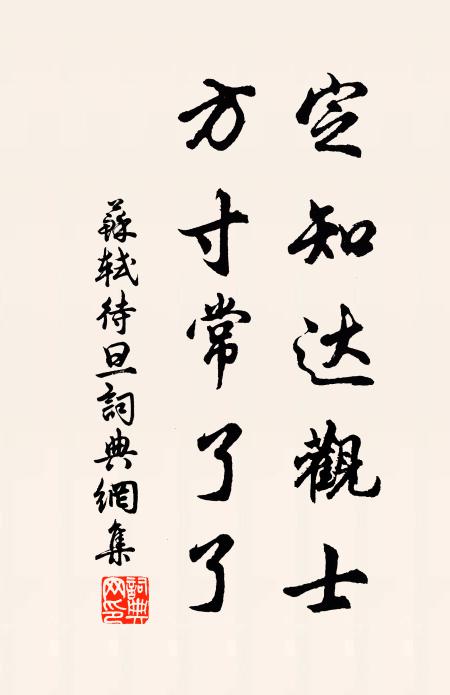 定知达觀士
方寸常了了
蘇軾待旦詞典網集
詞典网印